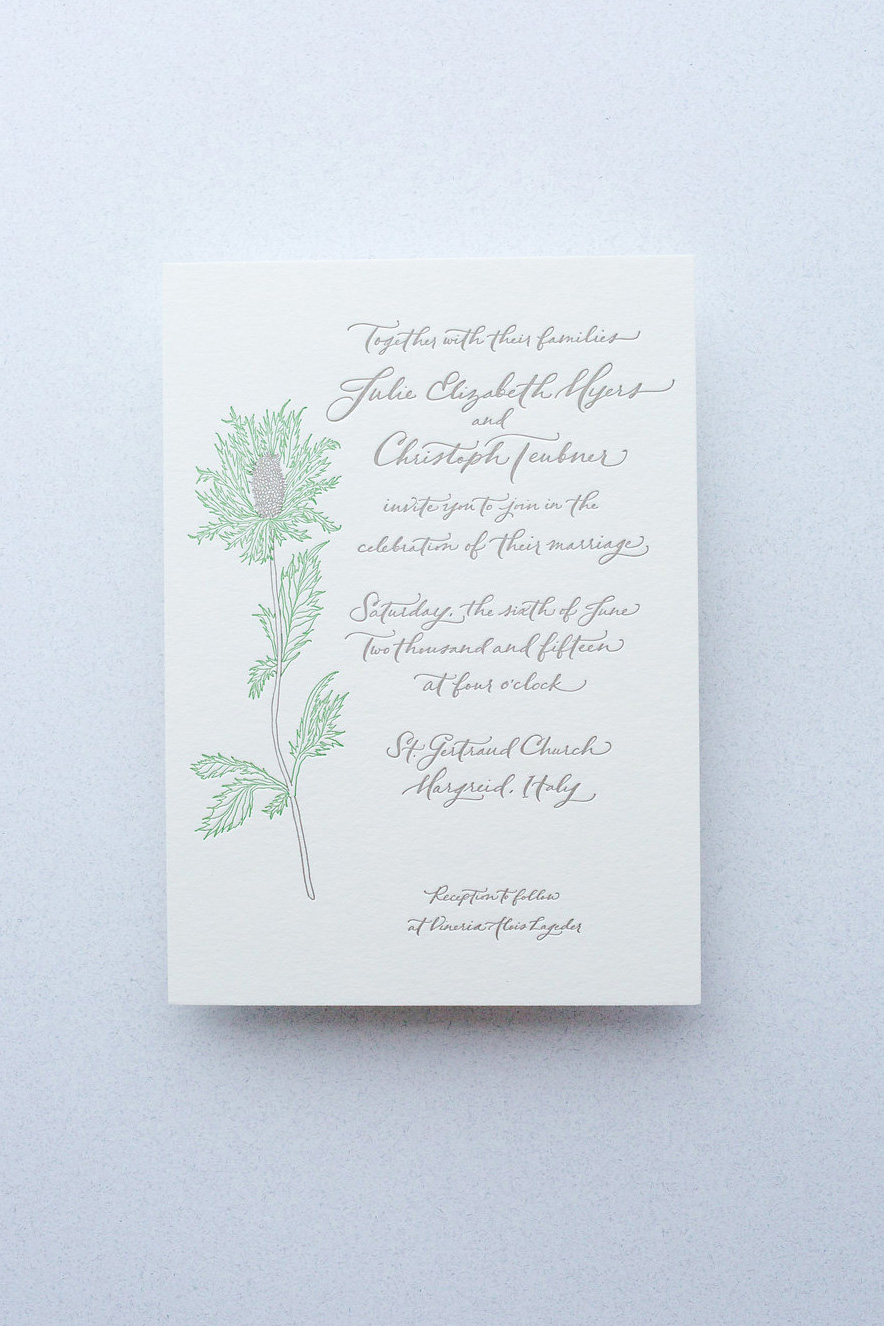 Together with their families
Julie Elizabeth Myers
and
Christoph Teubner
invite you to join in the
celebration of their marriage
Saturday, the sixth of June
Two thousand and fifteen
at four o'clock
St. Gertraud Church
Margreid, Italy
Reception to follow
at Vineria Alois Lageder